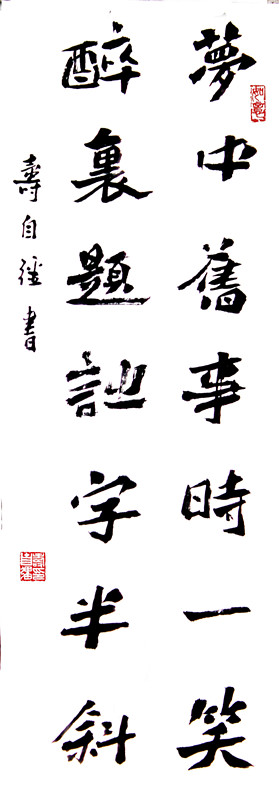 夢中舊事時一笑
醉裏題詩字半斜
壽自經書